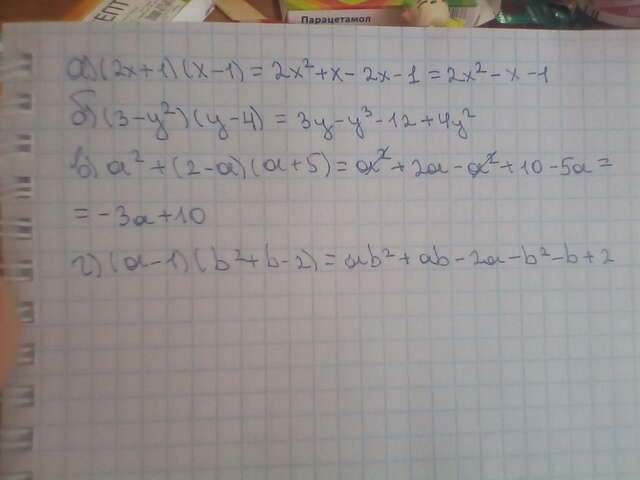 ЕПТ
Парацетамол
а) (2x+1)(x-1) = 2x²+x-2x-1 = 2x²-x-1
б) (3-y²)(y-4) = 3y-y³-12+4y²
в) a²+(2-a)(a+5) = a²+2a-a²+10-5a =
= -3a+10
г) (a-1)(b²+b-2) = ab²+ab-2a-b²-b+2